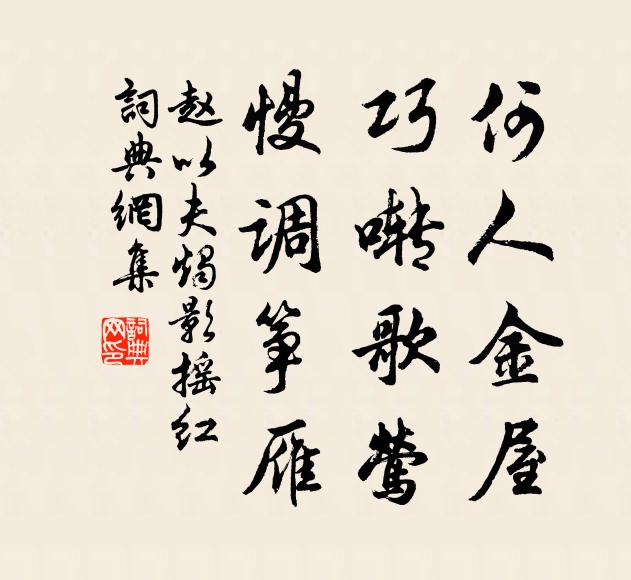 何人金屋
巧啭歌莺
慢调筝雁
赵以夫烛影摇红
詞典網集
詞典网印